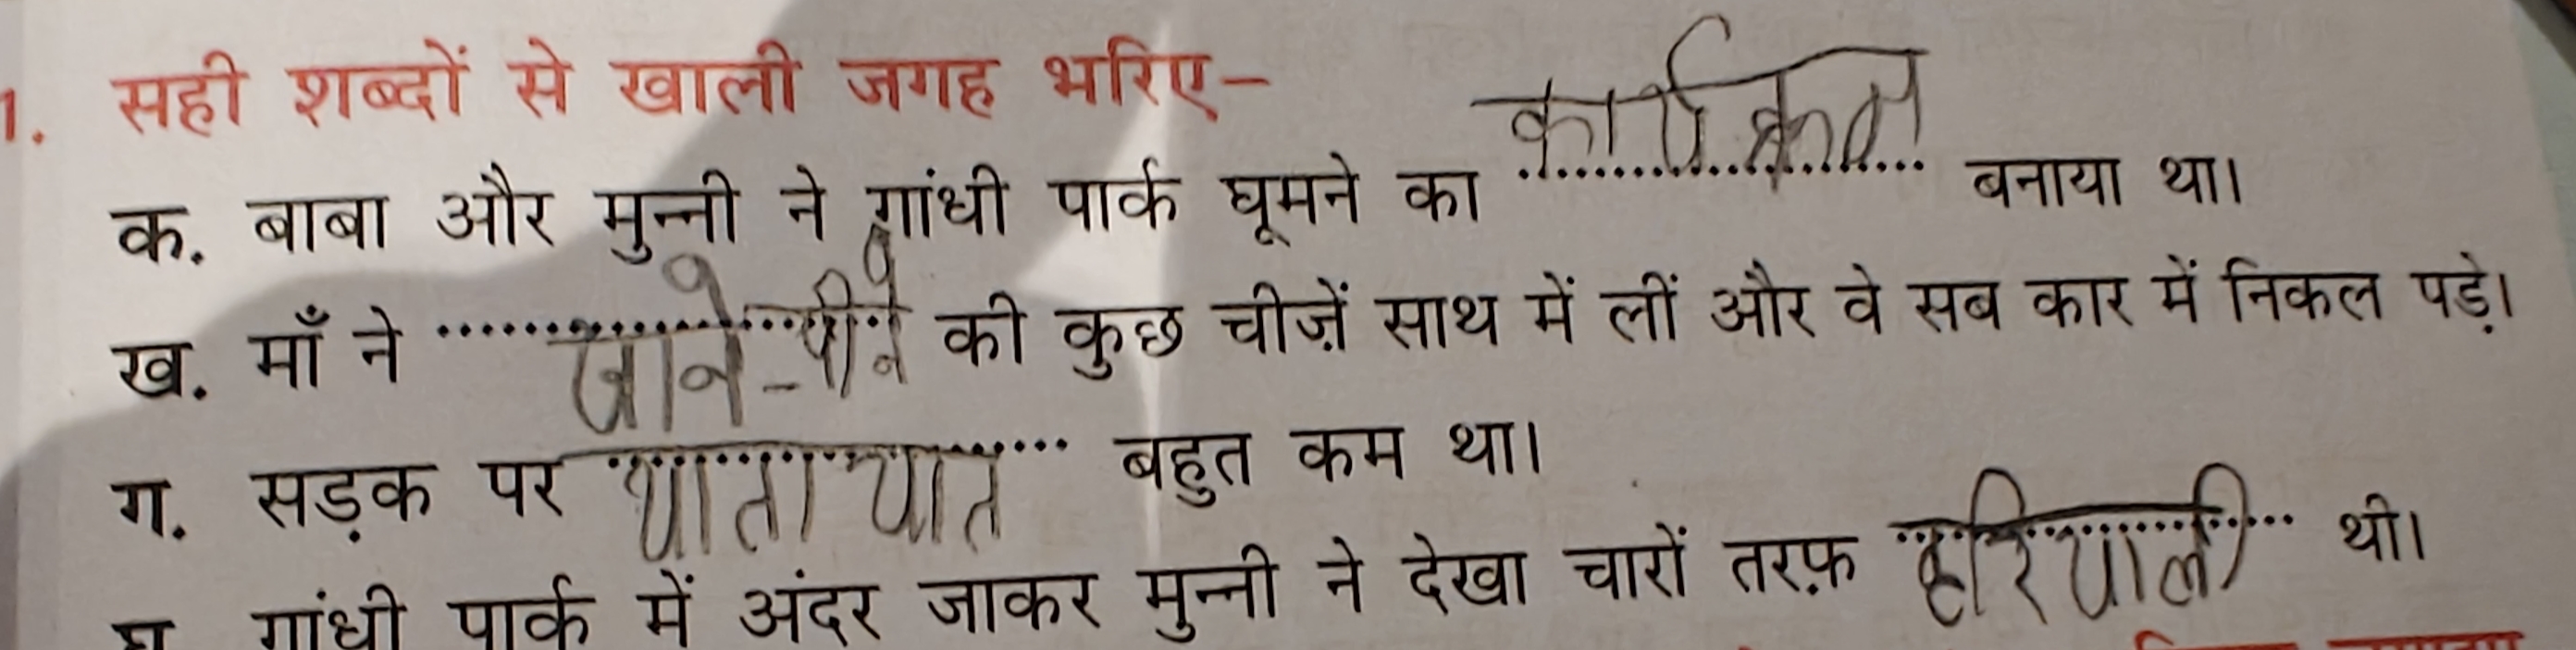 1. सही शब्दों से खाली जगह भरिए–
क. बाबा और मुन्नी ने गांधी पार्क घूमने का कार्यक्रम बनाया था।
ख. माँ ने खाने-पीने की कुछ चीज़ें साथ में लीं और वे सब कार में निकल पड़े।
ग. सड़क पर यातायात बहुत कम था।
घ गांधी पार्क में अंदर जाकर मुन्नी ने देखा चारों तरफ़ हरियाली थी।